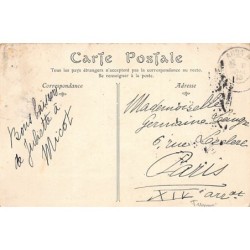 Carte Postale
Tous les pays étrangers n'acceptent pas la correspondance au recto.
Se renseigner à la poste.
Correspondance
Adresse
Bons baisers
de Juliette à
Micot
Mademoiselle
Germaine
6 rue
Paris
XIV arrdt